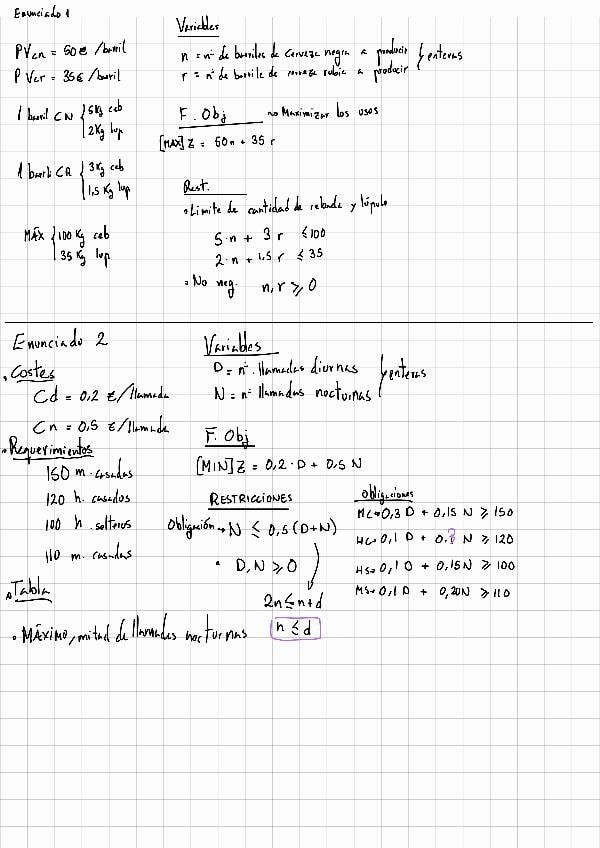 Enunciado 1
PVcn = 50€ /barril
PVcr = 35€ /barril
1 barril CN { 5Kg ceb
2Kg lup
1 barril CR { 3Kg ceb
1,5 Kg lup
MÁX { 100 Kg ceb
35 Kg lup
Variables
n = nº de barriles de cerveza negra a producir } enteras
r = nº de barrile de cerveza rubia a producir
F. Obj → Maximizar los usos
[MAX] Z = 50n + 35 r
Rest.
• Limite de cantidad de cebada y lúpulo
5·n + 3 r ≤ 100
2·n + 1,5 r ≤ 35
• No neg. n, r ≥ 0
Enunciado 2
• Costes
Cd = 0,2 €/llamada
Cn = 0,5 €/llamada
• Requerimientos
150 m. casadas
120 h. casados
100 h. solteros
110 m. casadas
• Tabla
• MÁXIMO, mitad de llamadas nocturnas
Variables
D = nº. llamadas diurnas } enteras
N = nº llamadas nocturnas
F. Obj
[MIN] Z = 0,2 · D + 0,5 N
RESTRICCIONES
Obligación → N ≤ 0,5 (D+N)
• D, N ≥ 0
2n ≤ n+d
n ≤ d
Obligaciones
MC → 0,3 D + 0,15 N ≥ 150
HC → 0,1 D + 0,? N ≥ 120
HS → 0,1 D + 0,15N ≥ 100
MS → 0,1 D + 0,20N ≥ 110